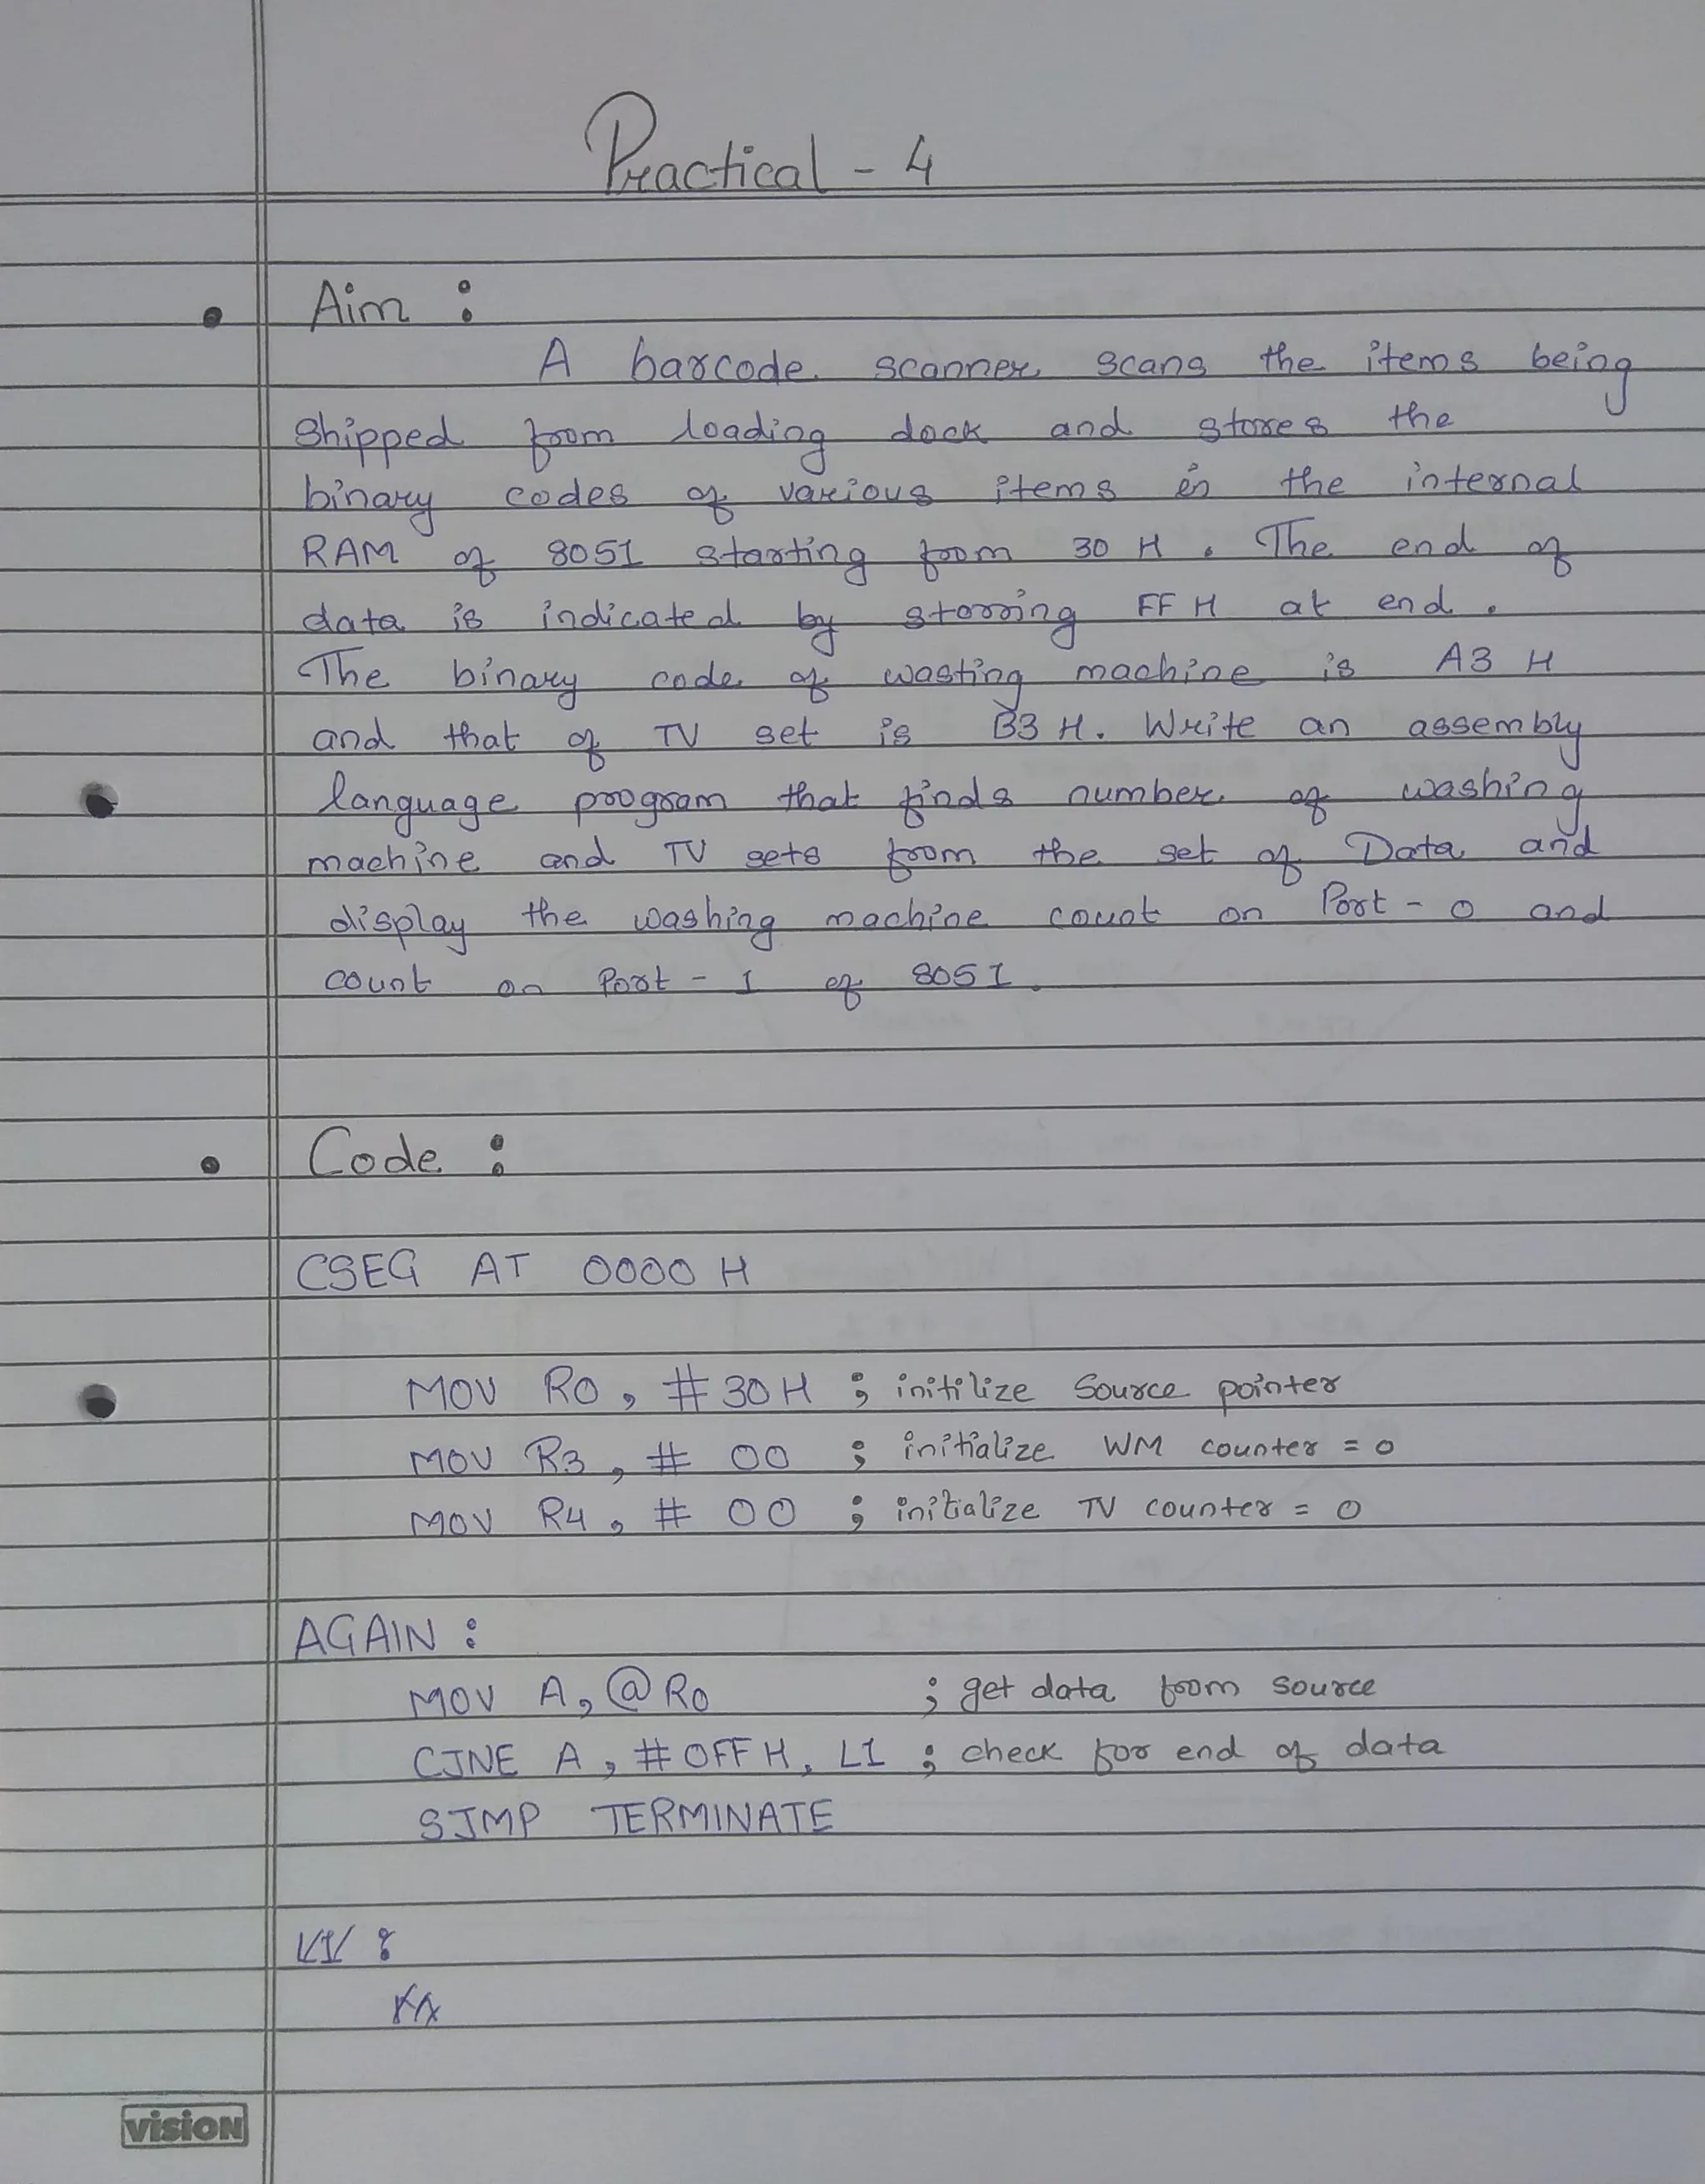 Practical - 4
Aim :
A barcode scanner scans the items being
shipped from loading dock and stores the
binary codes of various items in the internal
RAM of 8051 starting from 30 H. The end of
data is indicated by storring FF H at end.
The binary code of wasting machine is A3 H
and that of TV set is B3 H. Write an assembly
language program that finds number of washing
machine and TV sets from the set of Data and
display the washing machine count on Port - 0 and
count on Port - 1 of 8051.
Code :
CSEG AT 0000 H
MOV R0, # 30 H ; initilize Source pointer
MOV R3, # 00 ; initialize WM counter = 0
MOV R4, # 00 ; initialize TV counter = 0
AGAIN :
MOV A, @ R0 ; get data from source
CJNE A, # 0FF H, L1 ; check for end of data
SJMP TERMINATE
L1 :
vision